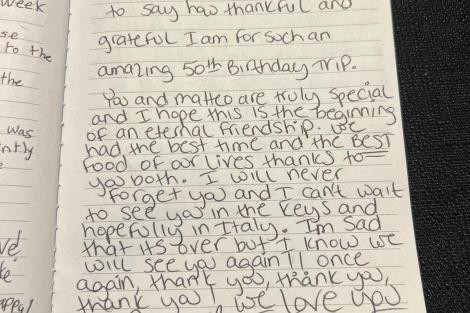 week
se
to the
the
was
ntly
to say how thankful and
grateful I am for such an
amazing 50th Birthday Trip.
You and matteo are truly special
and I hope this is the beginning
of an eternal friendship. We
had the best time and the BEST
food of our lives thanks to
you both. I will never
forget you and I can't wait
to see you in the Keys and
hopefully in Italy. I'm sad
that its over but I know we
will see you again!! once
again, thank you, thank you,
thank you! we love you